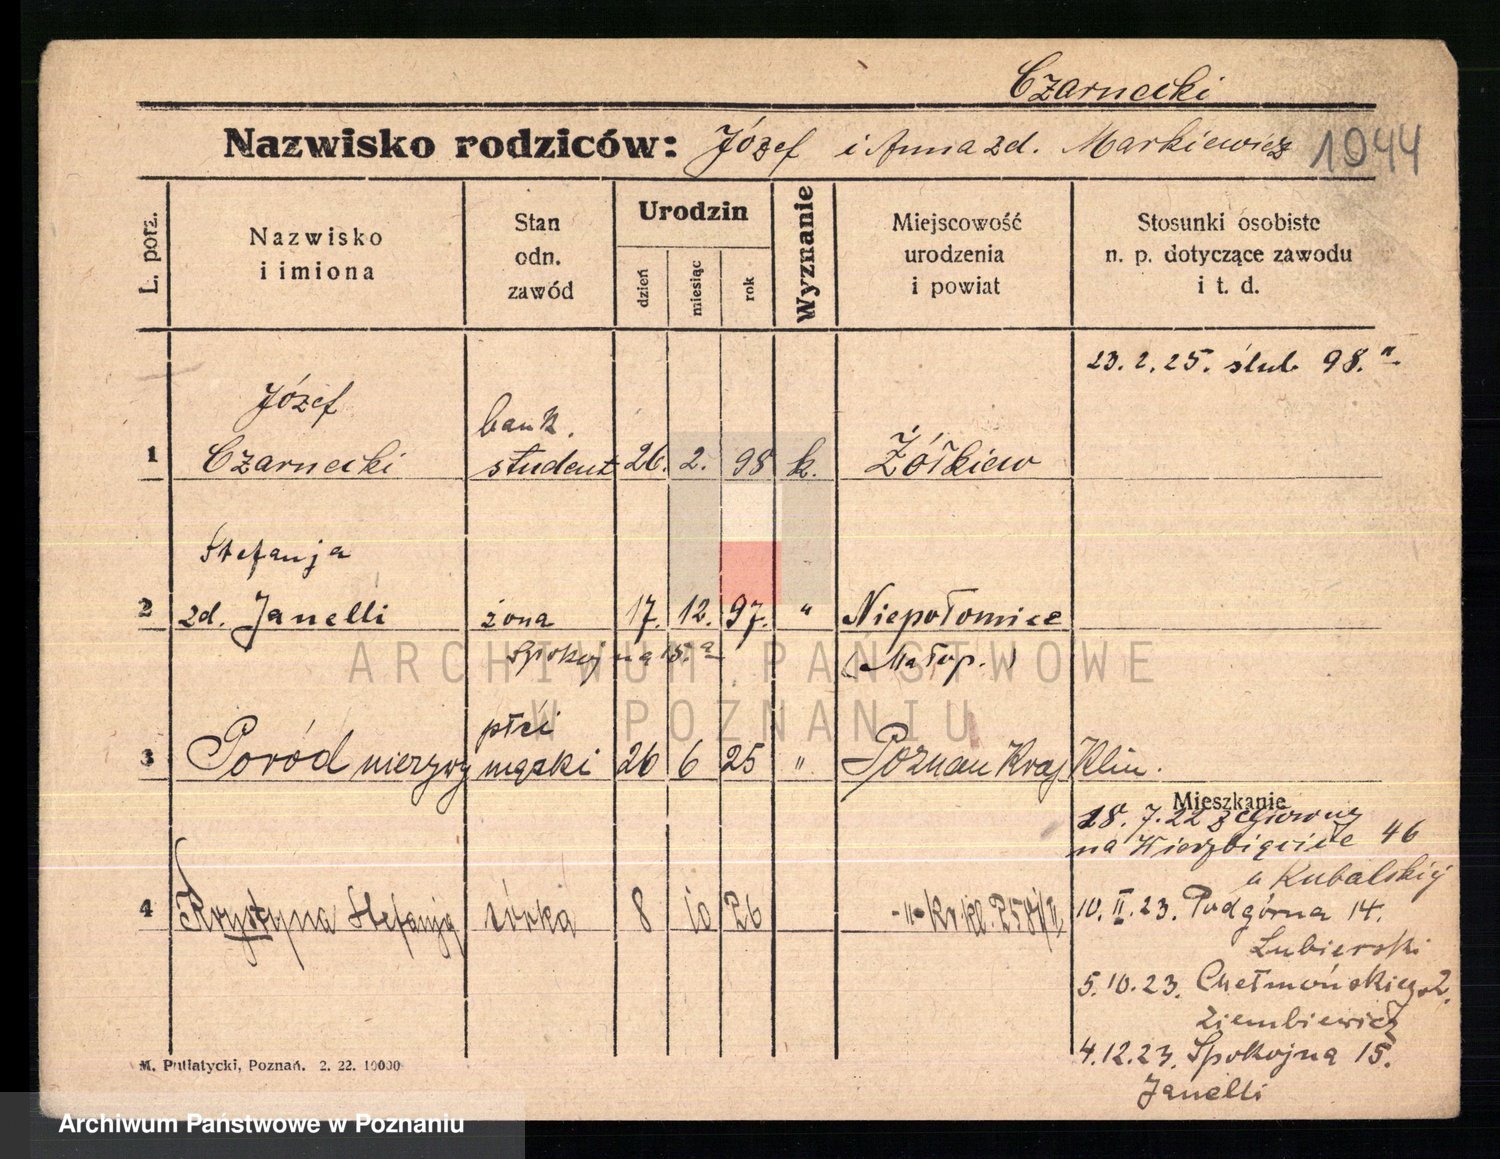 Czarnecki
Nazwisko rodziców: Józef i Anna zd. Markiewicz 1944
L. porz.
Nazwisko
i imiona
Stan
odn.
zawód
Urodzin
dzień
miesiąc
rok
Wyznanie
Miejscowość
urodzenia
i powiat
Stosunki osobiste
n. p. dotyczące zawodu
i t. d.
23. 2. 25. ślub 98.
Józef bank.
1 Czarnecki student 26. 2. 98 k. Żółkiew
Stefanja
2 zd. Janelli żona 17. 12. 97. " Niepołomice
Spokojna 15. a (Małop.)
płci
3 Poród nieżywy męski 26 6 25 " Poznań Kraj Klin.
4 Krystyna Stefanja córka 8 10 26 -"-
Mieszkanie
18. 7. 22
na Wierzbięcice 46
u Kubalskiej
10. II. 23. Podgórna 14.
Lubierski
5. 10. 23. Chełmońskiego 2.
Ziembiewicz
4. 12. 23. Spokojna 15.
Janelli
M. Putiatycki, Poznań. 2. 22. 10000
ARCHIWUM PAŃSTWOWE
W POZNANIU
Archiwum Państwowe w Poznaniu